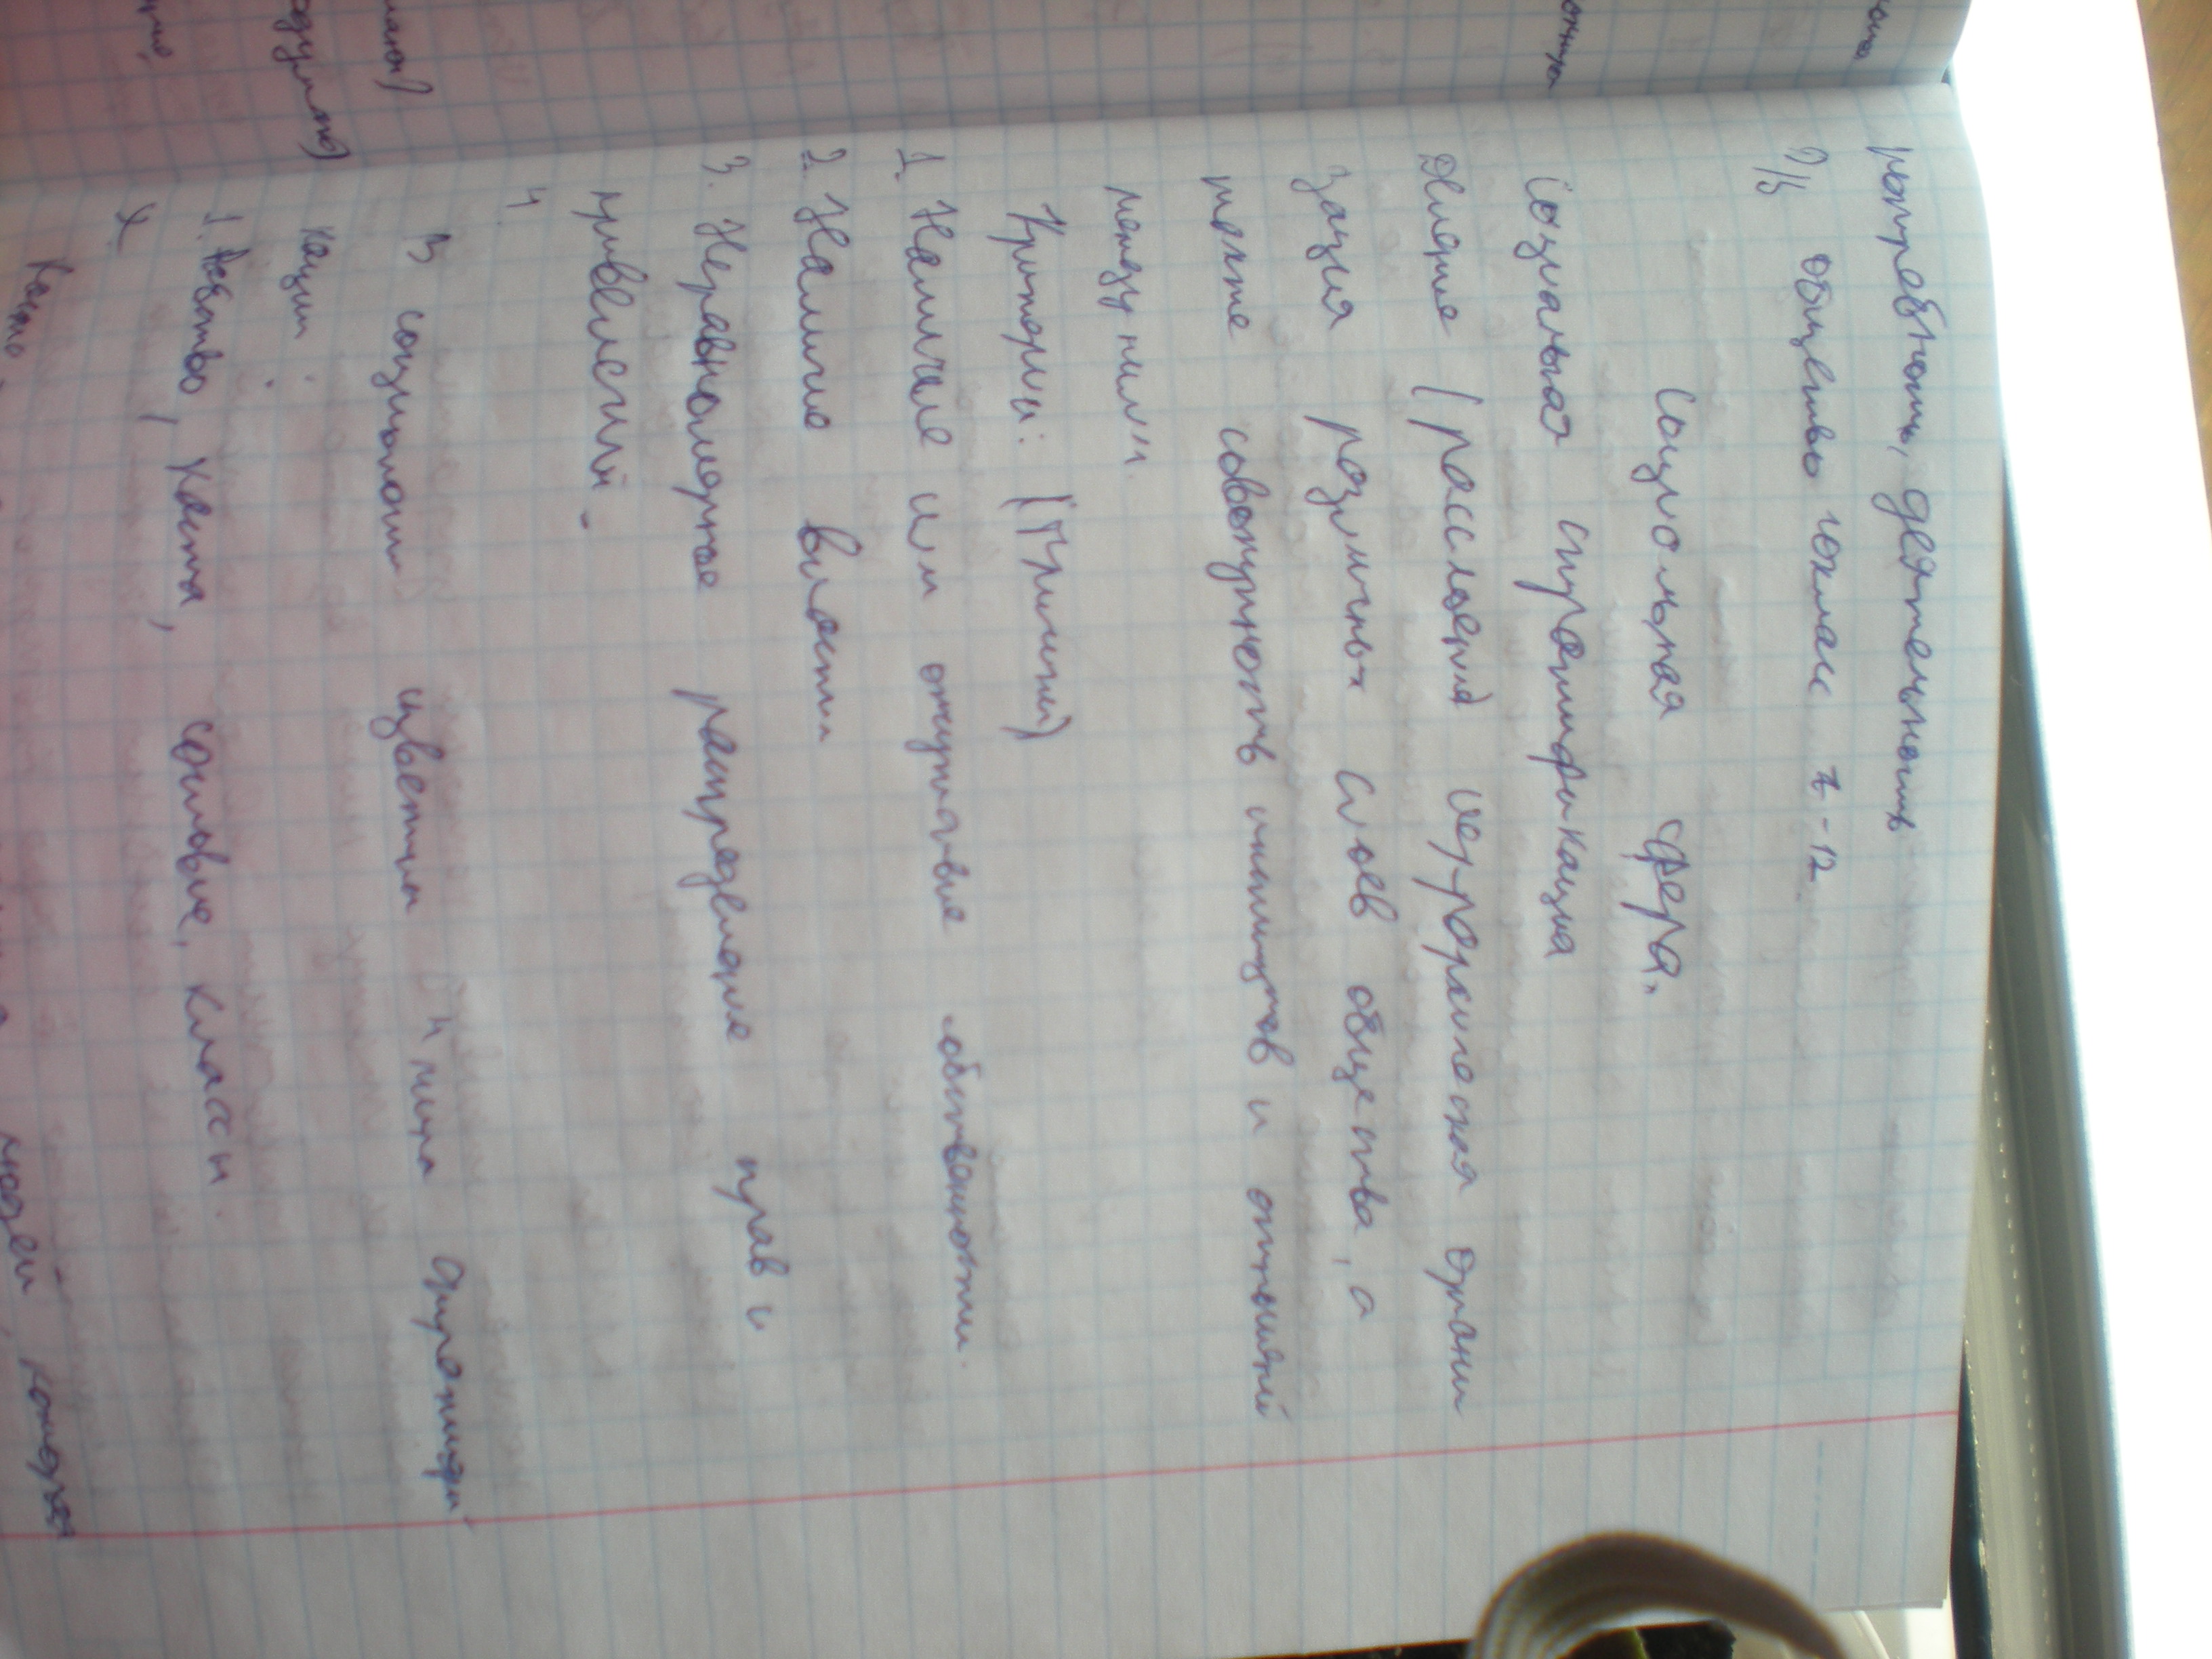 потребность, деятельность
Д/З общество 10класс 7-12
Социольная сфера.
Социальная стратификация
Деление (расслоение) иерархическая органи
зация различных слоев общества, а
также совокупность институтов и отношений
между ними.
Критерии: (Причины)
1. Наличие или отсутствие собственности.
2. Наличие власти
3. Неравномерное распределение прав и
привелегий.
4.
В социологии известны 4 типа стратифи-
кации
1. Рабство, каста, сословие, классы.
Каста людей, которая